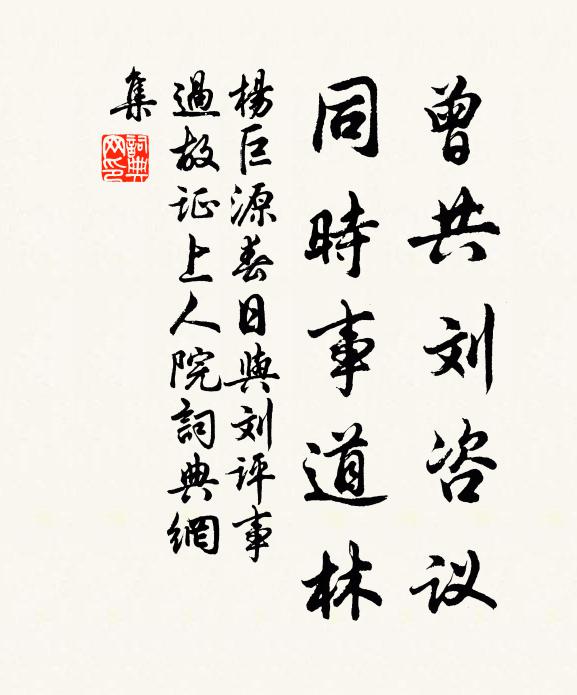 曾共刘咨议
同時事道林
楊巨源春日與刘评事
過故证上人院詞典網
集
詞典網印